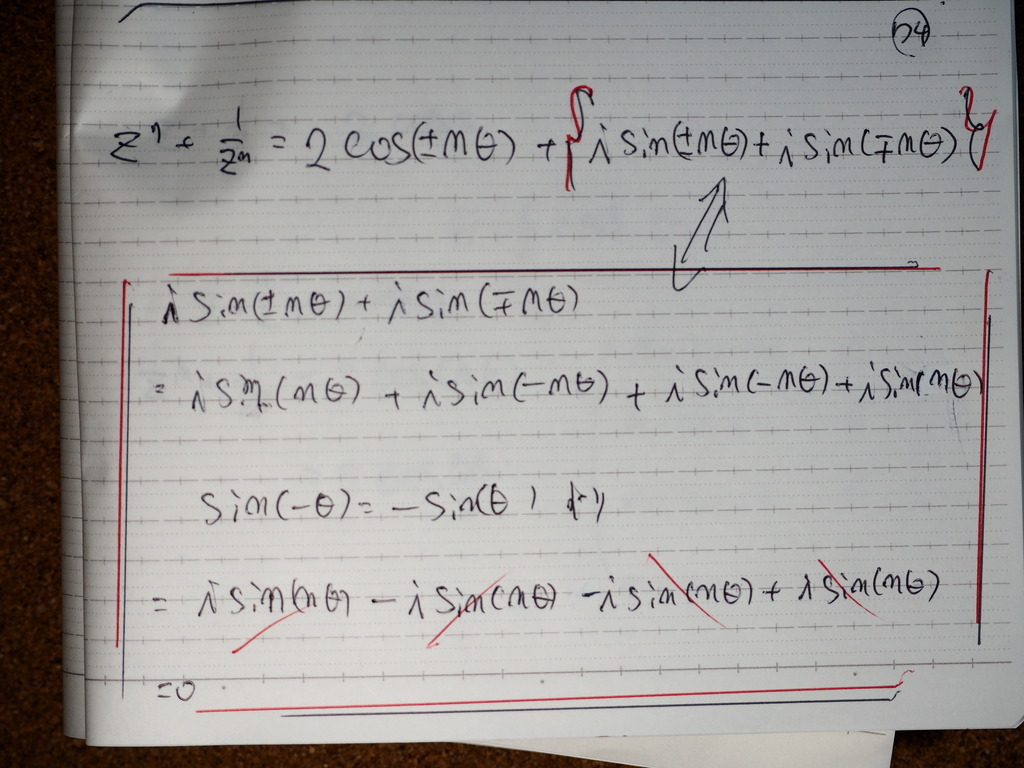 24
zⁿ + 1/zⁿ = 2 cos(±nθ) + { i sin(±nθ) + i sin(∓nθ) }
i sin(±nθ) + i sin(∓nθ)
= i sin(nθ) + i sin(-nθ) + i sin(-nθ) + i sin(nθ)
sin(-θ) = -sin(θ) より
= i sin(nθ) - i sin(nθ) - i sin(nθ) + i sin(nθ)
= 0